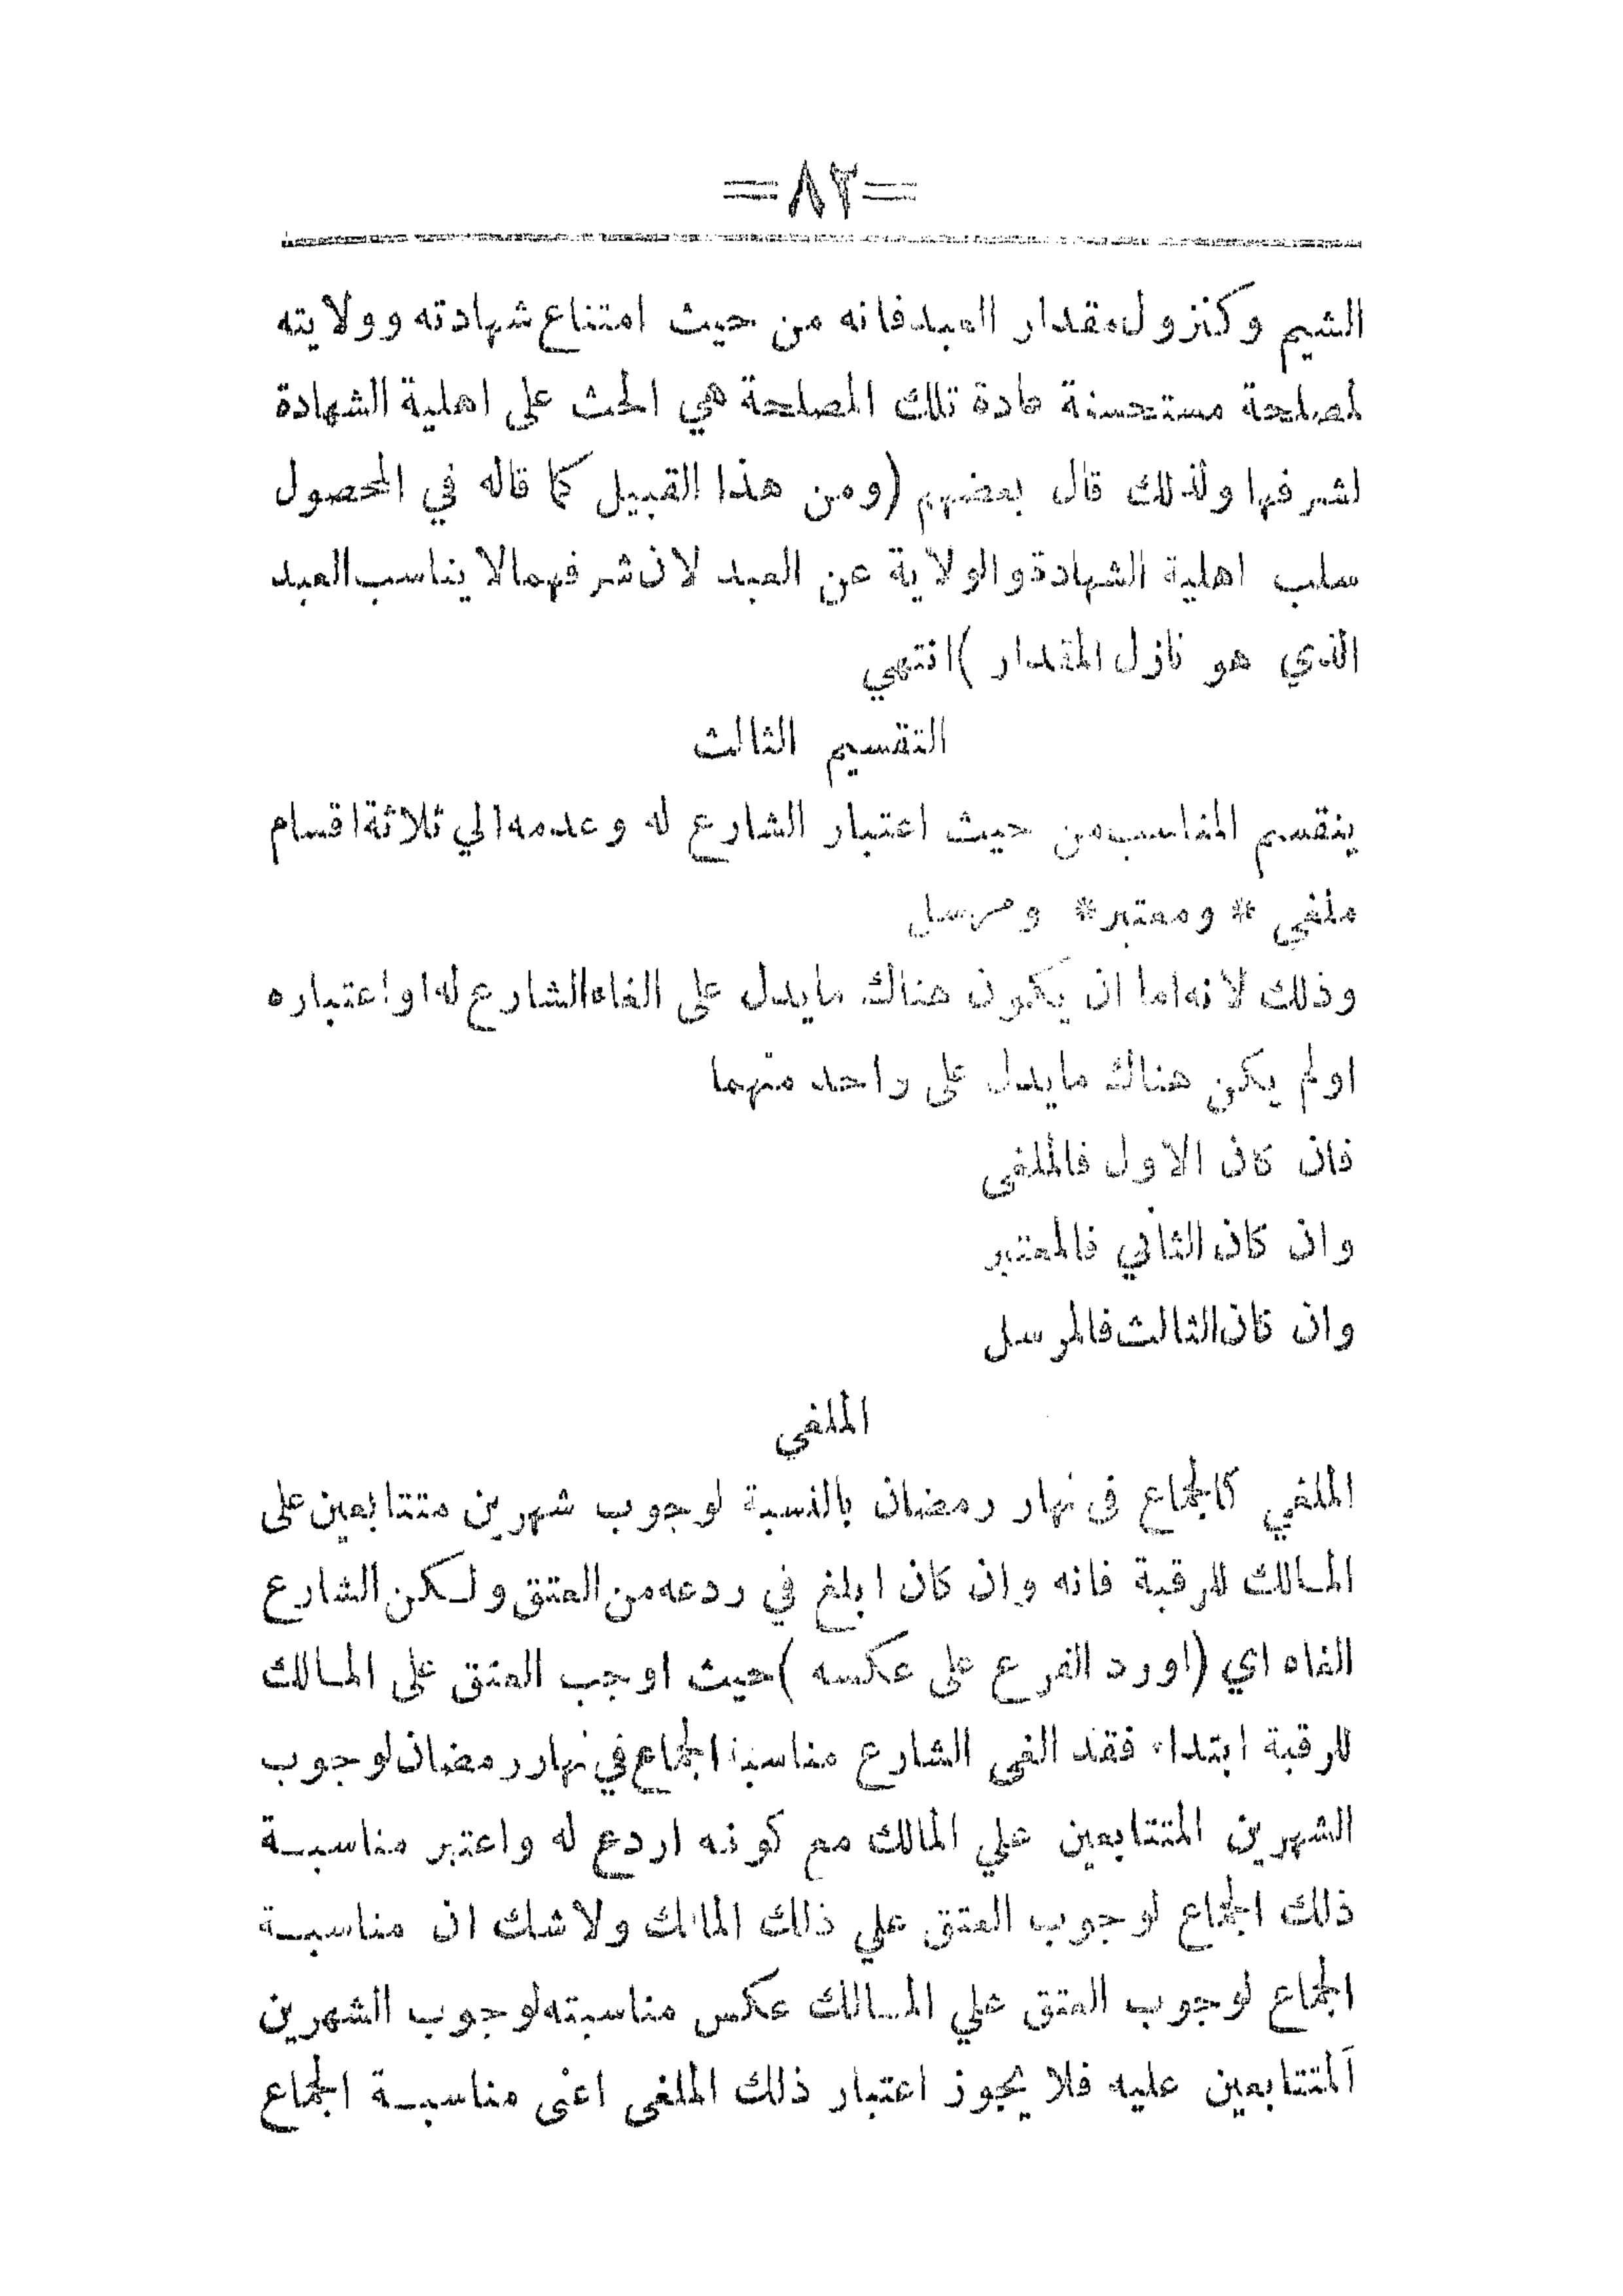 =٨٢=
الشيم وكنزول مقدار العبد فانه من حيث امتناع شهادته وولايته
لمصلحة مستحسنة عادة تلك المصلحة هي الحث على اهلية الشهادة
لشرفها ولذلك قال بعضهم (ومن هذا القبيل كما قاله في المحصول
سلب اهلية الشهادة والولاية عن العبد لان شرفهما لا يناسب العبد
الذي هو نازل المقدار )انتهي
التقسيم الثالث
ينقسم المناسب من حيث اعتبار الشارع له وعدمه الي ثلاثة اقسام
ملغي * ومعتبر* ومرسل
وذلك لانه اما ان يكون هناك مايدل على الغاء الشارع له او اعتباره
اولم يكن هناك مايدل على واحد منهما
فان كان الاول فالملغى
وان كان الثاني فالمعتبر
وان كان الثالث فالمرسل
الملغي
الملغي كالجماع فى نهار رمضان بالنسبة لوجوب شهرين متتابعين على
المالك للرقبة فانه وان كان ابلغ في ردعه من العتق ولكن الشارع
الغاه اي (اورد الفرع على عكسه )حيث اوجب العتق على المالك
للرقبة ابتداء فقد الغى الشارع مناسبة الجماع في نهار رمضان لوجوب
الشهرين المتتابعين علي المالك مع كونه اردع له واعتبر مناسبة
ذلك الجماع لوجوب العتق علي ذلك المالك ولاشك ان مناسبة
الجماع لوجوب العتق علي المالك عكس مناسبته لوجوب الشهرين
المتتابعين عليه فلا يجوز اعتبار ذلك الملغى اعنى مناسبة الجماع